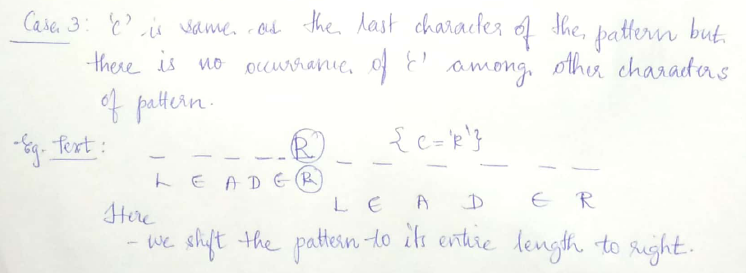 Case 3: 'c' is same as the last character of the pattern but
there is no occurrance of 'c' among other characters
of pattern.
-Eg. Text: _ _ _ _ _ R _ _ _ _ _ _ { c = 'R' }
L E A D E R
L E A D E R
Here
- we shift the pattern to its entire length to right.